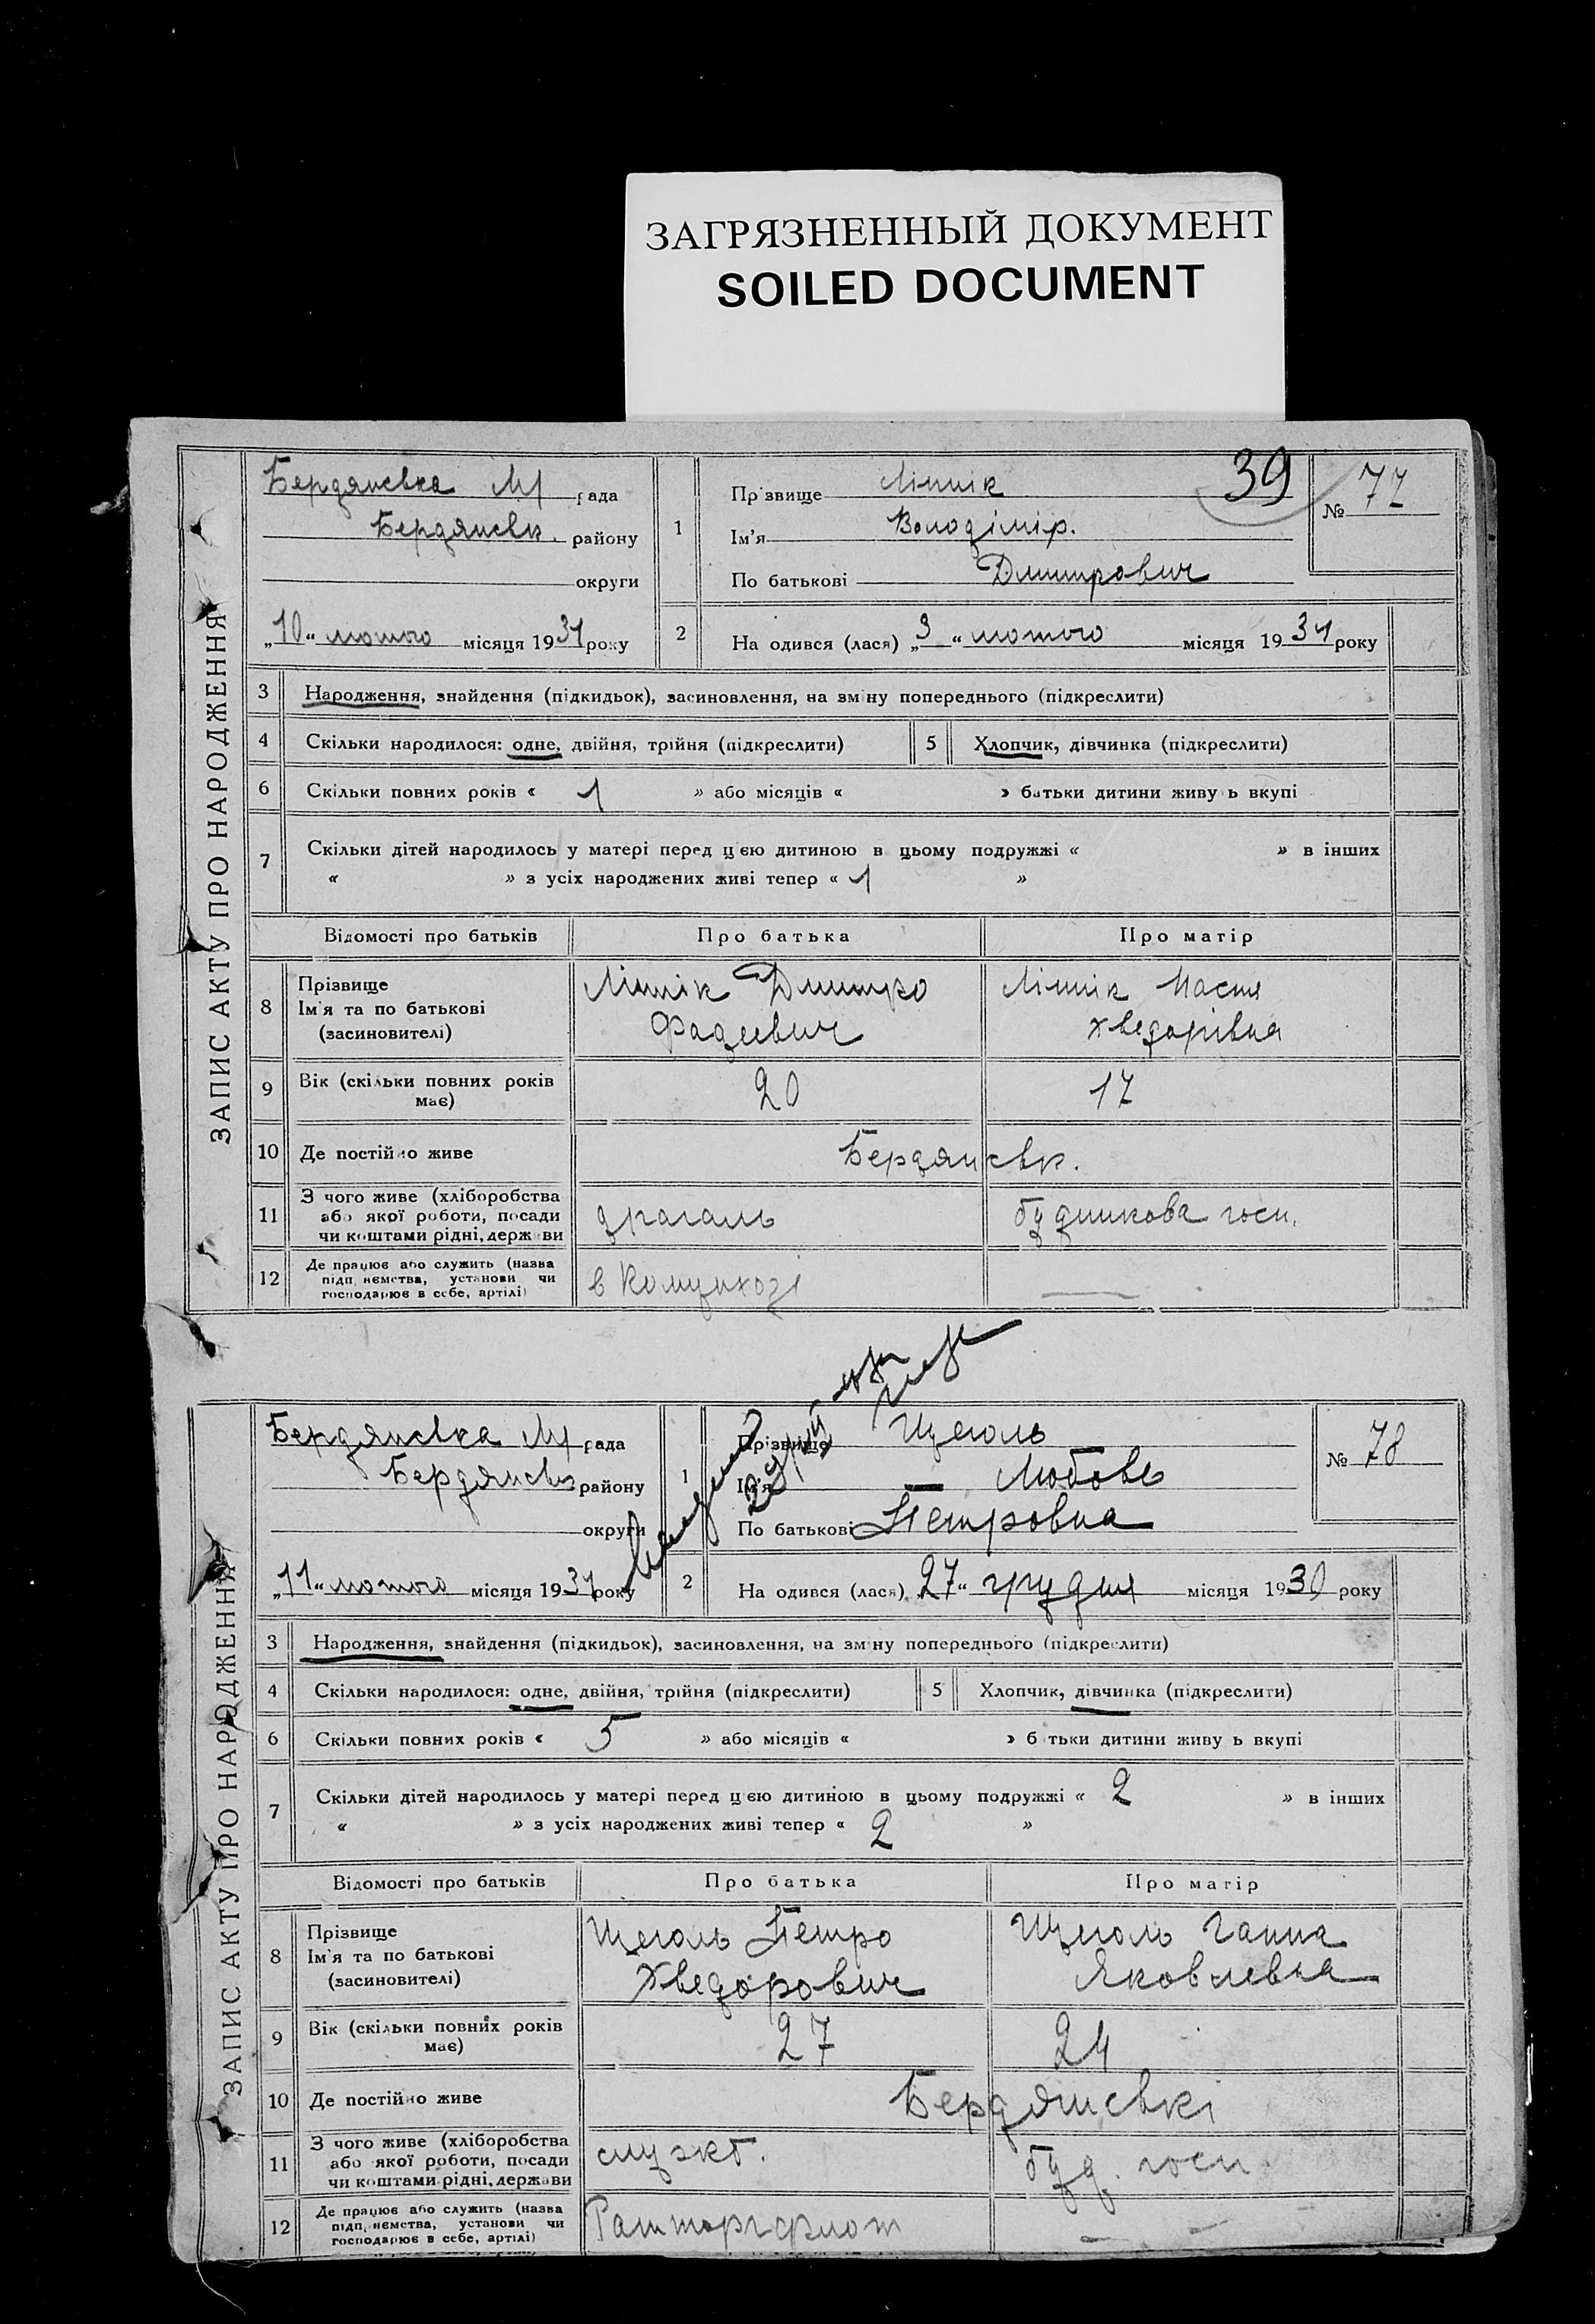 ЗАГРЯЗНЕННЫЙ ДОКУМЕНТ
SOILED DOCUMENT
ЗАПИС АКТУ ПРО НАРОДЖЕННЯ
Бердянська М/ рада
Бердянськ. району
округи
„10“ лютого місяця 1931 року
1
Прізвище Лінник
39
№ 77
Ім'я Володімір.
По батькові Дмитрович
2 На одився (лася) „3“ лютого місяця 1931 року
3 Народження, знайдення (підкидьок), засиновлення, на зміну попереднього (підкреслити)
4 Скільки народилося: одне, двійня, трійня (підкреслити) 5 Хлопчик, дівчинка (підкреслити)
6 Скільки повних років « 1 » або місяців « » батьки дитини живу ь вкупі
7 Скільки дітей народилось у матері перед цією дитиною в цьому подружжі « » в інших
« » з усіх народжених живі тепер « 1 »
Відомості про батьків Про батька Про матір
8 Прізвище Ім'я та по батькові (засиновителі)
Лінник Дмитро
Фадеевич
Лінник Настя
Хведорівна
9 Вік (скільки повних років має) 20 17
10 Де постійно живе Бердянськ.
11 З чого живе (хліборобства або якої роботи, посади чи коштами рідні, держави драгаль будинкова госп.
12 Де працює або служить (назва підприємства, установи чи господарює в себе, артілі) в Комунхозі —
ЗАПИС АКТУ ПРО НАРОДЖЕННЯ
Бердянська М/ рада
Бердянськ району
округи
„11“ лютого місяця 1931 року
1
Прізвище Щеголь
№ 78
Ім'я Любовь
По батькові Петровна
2 На одився (лася) „27“ грудня місяця 1930 року
3 Народження, знайдення (підкидьок), засиновлення, на зміну попереднього (підкреслити)
4 Скільки народилося: одне, двійня, трійня (підкреслити) 5 Хлопчик, дівчинка (підкреслити)
6 Скільки повних років « 5 » або місяців « » б тьки дитини живу ь вкупі
7 Скільки дітей народилось у матері перед цією дитиною в цьому подружжі « 2 » в інших
« » з усіх народжених живі тепер « 2 »
Відомості про батьків Про батька Про матір
8 Прізвище Ім'я та по батькові (засиновителі)
Щеголь Петро
Хведорович
Щеголь Ганна
Яковлевна
9 Вік (скільки повних років має) 27 24
10 Де постійно живе Бердянські
11 З чого живе (хліборобства або якої роботи, посади чи коштами рідні, держави служб. буд. госп.
12 Де працює або служить (назва підприємства, установи чи господарює в себе, артілі) —